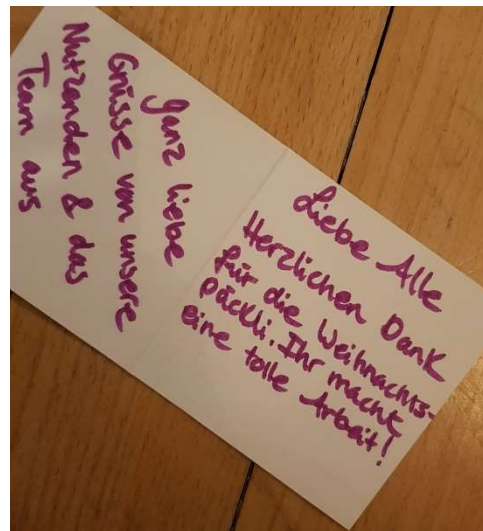 Liebe Alle
Herzlichen Dank
für die Weihnachts-
päckli. Ihr macht
eine tolle Arbeit!
ganz liebe
Grüsse von unsere
Nutzenden & das
Team aus